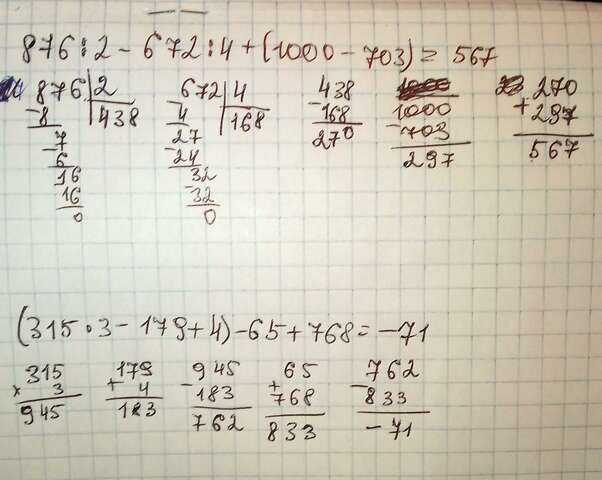 876:2-672:4+(1000-703)=567
876 2 672 4 438 1000 270
-8 438 -4 168 -168 -703 +297
7 27 270 297 567
-6 -24
16 32
16 -32
0 0
(315·3-179+4)-65+768=-71
315 179 945 65 762
×3 +4 -183 +768 -833
945 183 762 833 -71